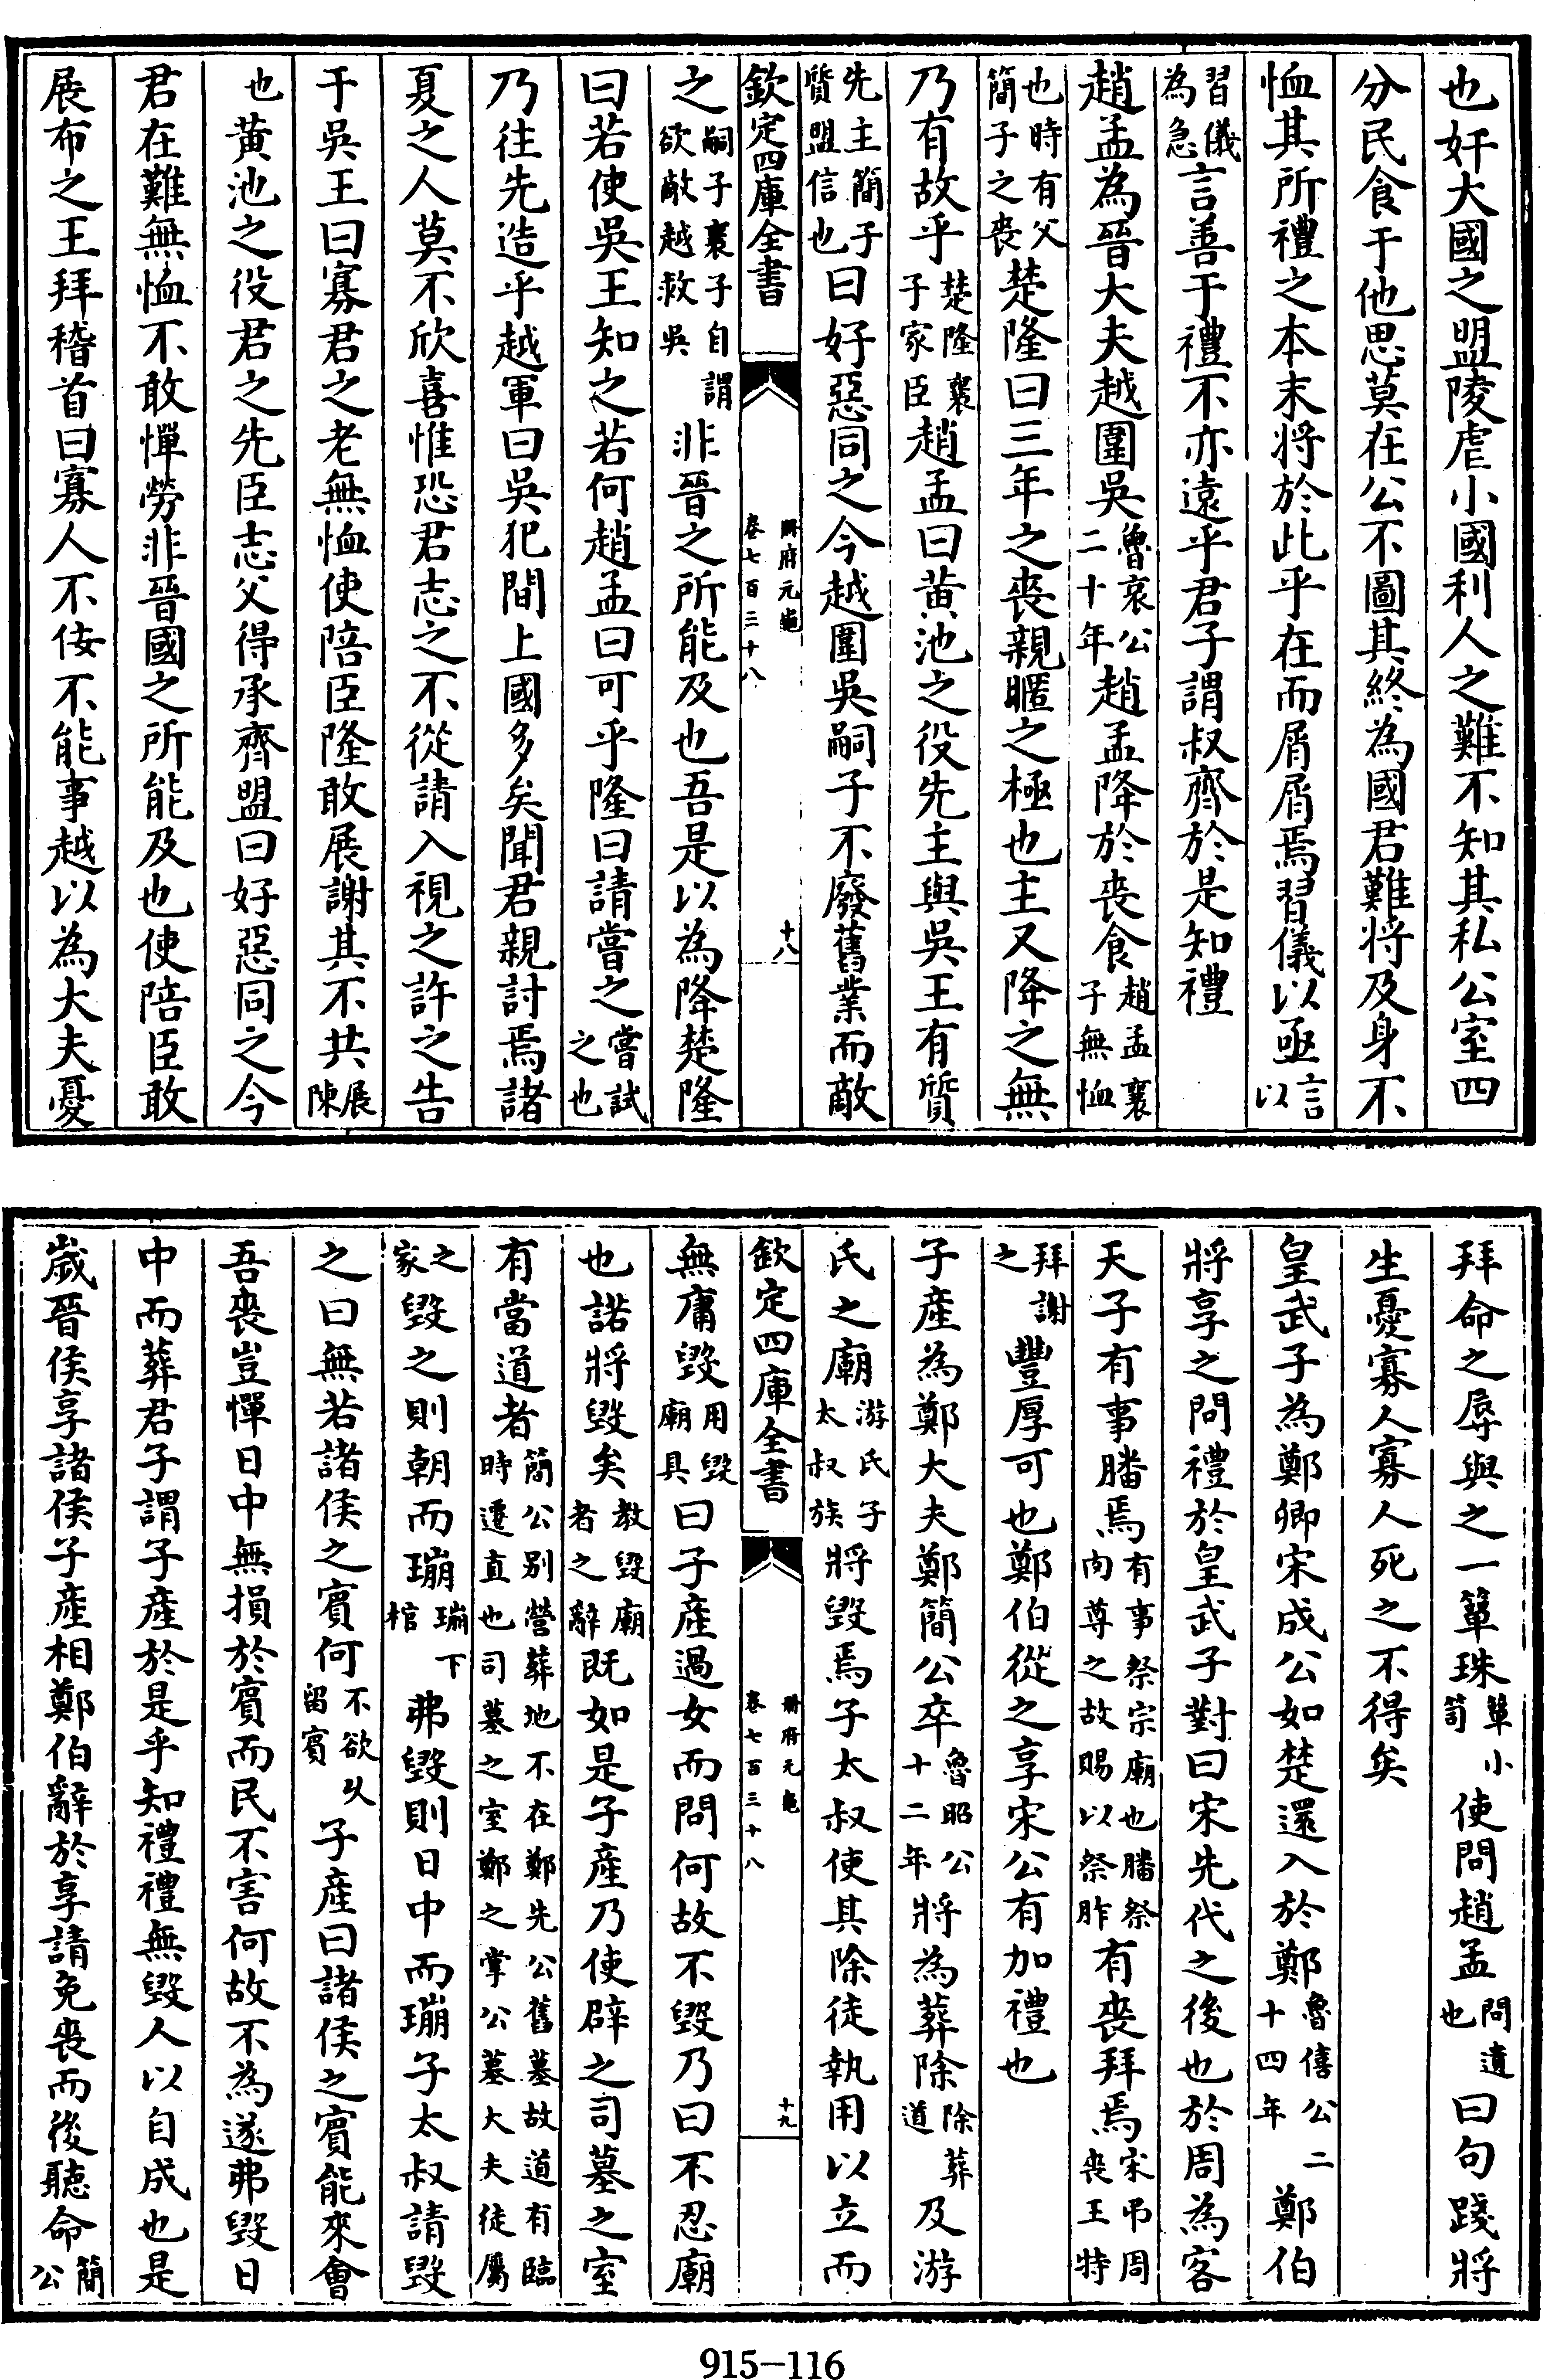 也奸大國之盟陵虐小國利人之難不知其私公室四
分民食于他思莫在公不圖其終為國君難將及身不
恤其所禮之本末將於此乎在而屑屑焉習儀以亟言以
習儀為急言善于禮不亦遠乎君子謂叔齊於是知禮
趙孟為晉大夫越圍吳魯哀公二十年趙孟降於喪食趙孟襄子無恤
也時有父簡子之喪楚隆曰三年之喪親暱之極也主又降之無
乃有故乎楚隆襄子家臣趙孟曰黃池之役先主與吳王有質
先主簡子質盟信也曰好惡同之今越圍吳嗣子不廢舊業而敵
欽定四庫全書
冊府元龜
卷七百三十八
十八
之嗣子襄子自謂欲敵越救吳非晉之所能及也吾是以為降楚隆
曰若使吳王知之若何趙孟曰可乎隆曰請嘗之嘗試之也
乃往先造乎越軍曰吳犯間上國多矣聞君親討焉諸
夏之人莫不欣喜惟恐君志之不從請入視之許之告
于吳王曰寡君之老無恤使陪臣隆敢展謝其不共展陳
也黃池之役君之先臣志父得承齊盟曰好惡同之今
君在難無恤不敢憚勞非晉國之所能及也使陪臣敢
展布之王拜稽首曰寡人不佞不能事越以為大夫憂
拜命之辱與之一簞珠簞小笥使問趙孟問遺也曰句踐將
生憂寡人寡人死之不得矣
皇武子為鄭卿宋成公如楚還入於鄭魯僖公二十四年鄭伯
將享之問禮於皇武子對曰宋先代之後也於周為客
天子有事膰焉有事祭宗廟也膰祭肉尊之故賜以祭胙有喪拜焉宋弔周喪王特
拜謝之豐厚可也鄭伯從之享宋公有加禮也
子產為鄭大夫鄭簡公卒魯昭公十二年將為葬除除葬道及游
氏之廟游氏子太叔族將毀焉子太叔使其除徒執用以立而
欽定四庫全書
冊府元龜
卷七百三十八
十九
無庸毀用毀廟具曰子產過女而問何故不毀乃曰不忍廟
也諾將毀矣教毀廟者之辭既如是子產乃使辟之司墓之室
有當道者簡公別營葬地不在鄭先公舊墓故道有臨時遷直也司墓之室鄭之掌公墓大夫徒屬
之家毀之則朝而塴塴下棺弗毀則日中而塴子太叔請毀
之曰無若諸侯之賓何不欲久留賓子產曰諸侯之賓能來會
吾喪豈憚日中無損於賓而民不害何故不為遂弗毀日
中而葬君子謂子產於是乎知禮禮無毀人以自成也是
歲晉侯享諸侯子產相鄭伯辭於享請免喪而後聽命簡公
915-116